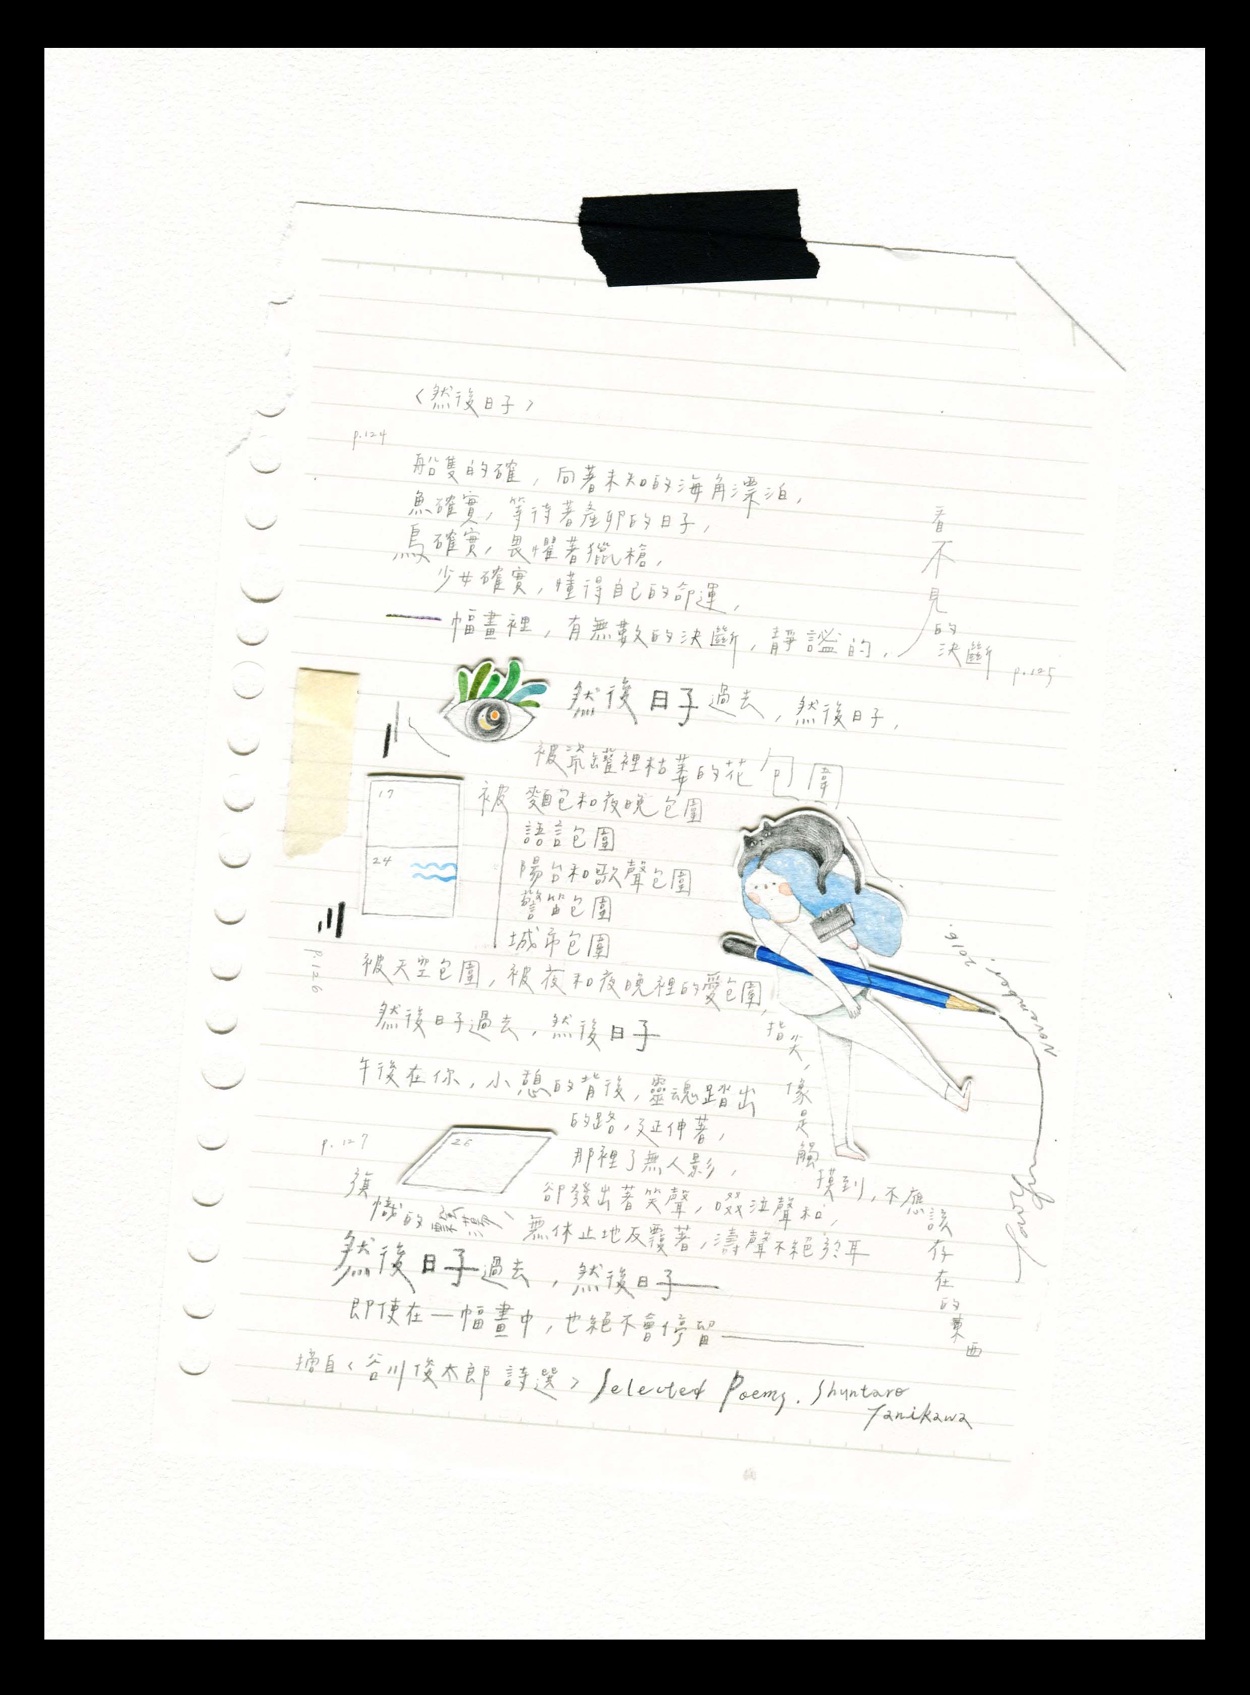 〈然後日子〉
p.124
船隻的確，向著未知的海角漂泊，
魚確實，等待著產卵的日子，
鳥確實，畏懼著獵槍，
少女確實，懂得自己的命運，
一幅畫裡，有無數的決斷，靜謐的，
看不見的決斷
p.125
然後日子過去，然後日子，
被瓷罐裡枯萎的花包圍
被麵包和夜晚包圍
語言包圍
陽台和歌聲包圍
警笛包圍
城市包圍
17
24
p.126
被天空包圍，被夜和夜晚裡的愛包圍，
然後日子過去，然後日子
午後在你，小憩的背後，靈魂踏出
的路，延伸著，
那裡了無人影，
卻發出著笑聲，啜泣聲和，
無休止地反覆著，濤聲不絕於耳
指尖，像是觸摸到，不應該存在的東西
p.127
26
然後日子過去，然後日子——
即使在一幅畫中，也絕不會停留——
摘自〈谷川俊太郎詩選〉Selected Poems. Shuntaro
Tanikawa
November. 2016.